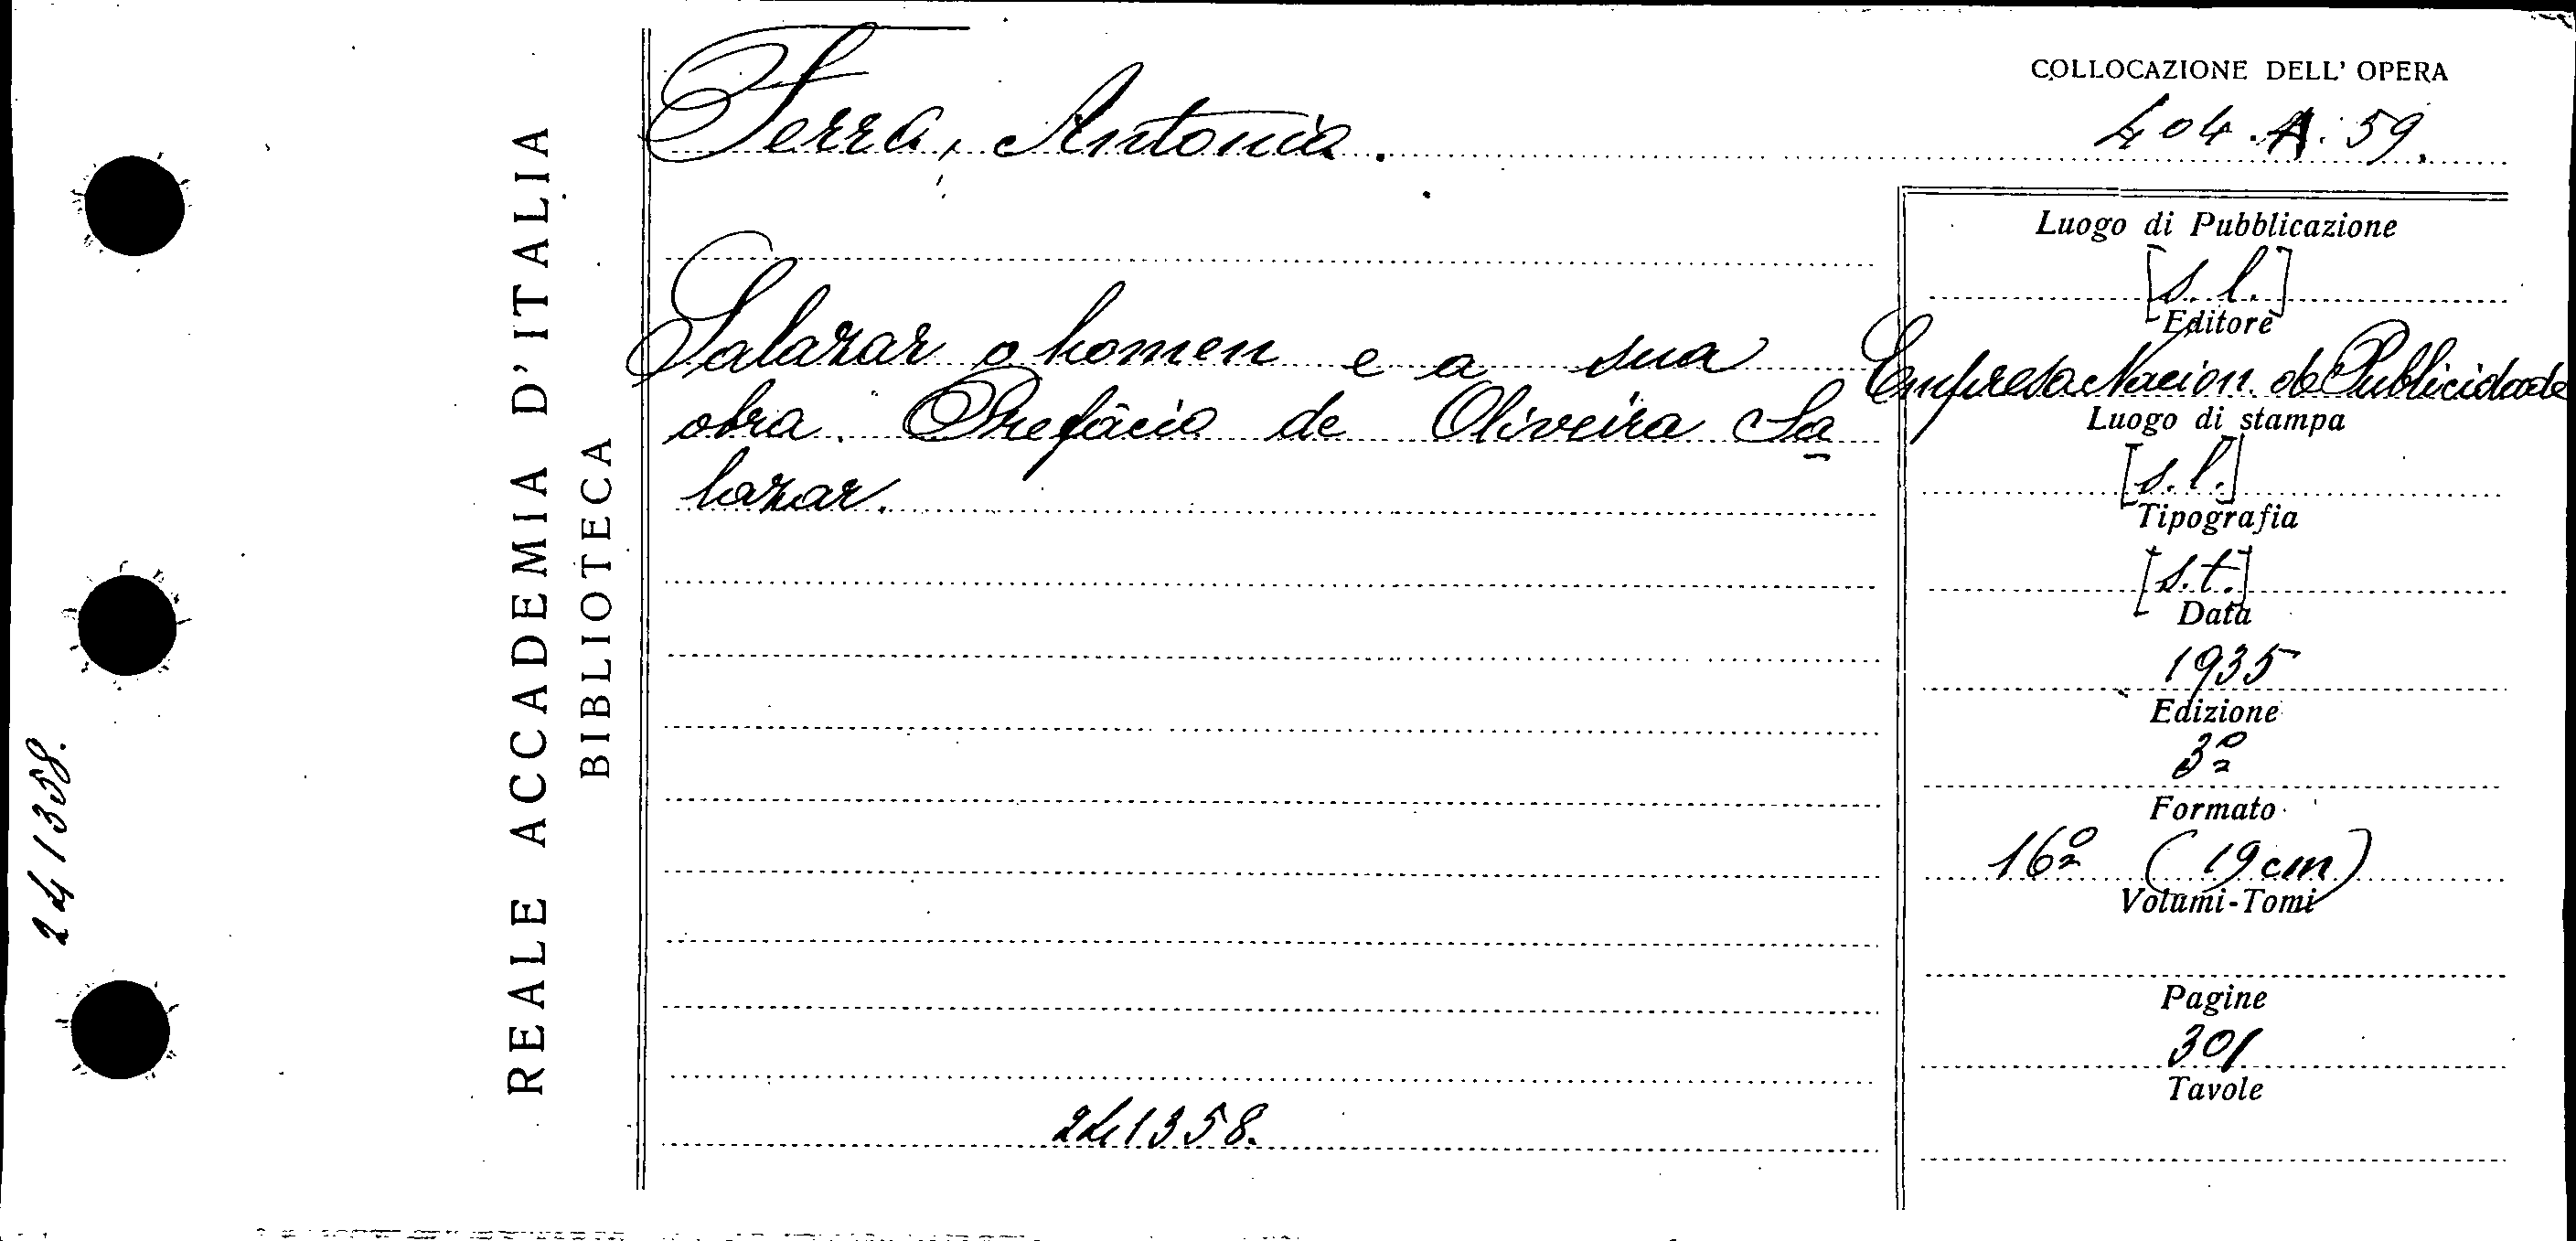 COLLOCAZIONE DELL' OPERA
Ferra, Antonia.
404.A.59.
REALE ACCADEMIA D'ITALIA
BIBLIOTECA
Salazar o homen e a sua
obra. Prefácio de Oliveira Sa
lazar.
241358.
Luogo di Pubblicazione
[s. l.]
Editore
Empresa Nacion. de Publicidade
Luogo di stampa
[s. l.]
Tipografia
[s.t.]
Data
1935
Edizione
3º
Formato
16º (19 cm)
Volumi-Tomi
Pagine
301
Tavole
241358.